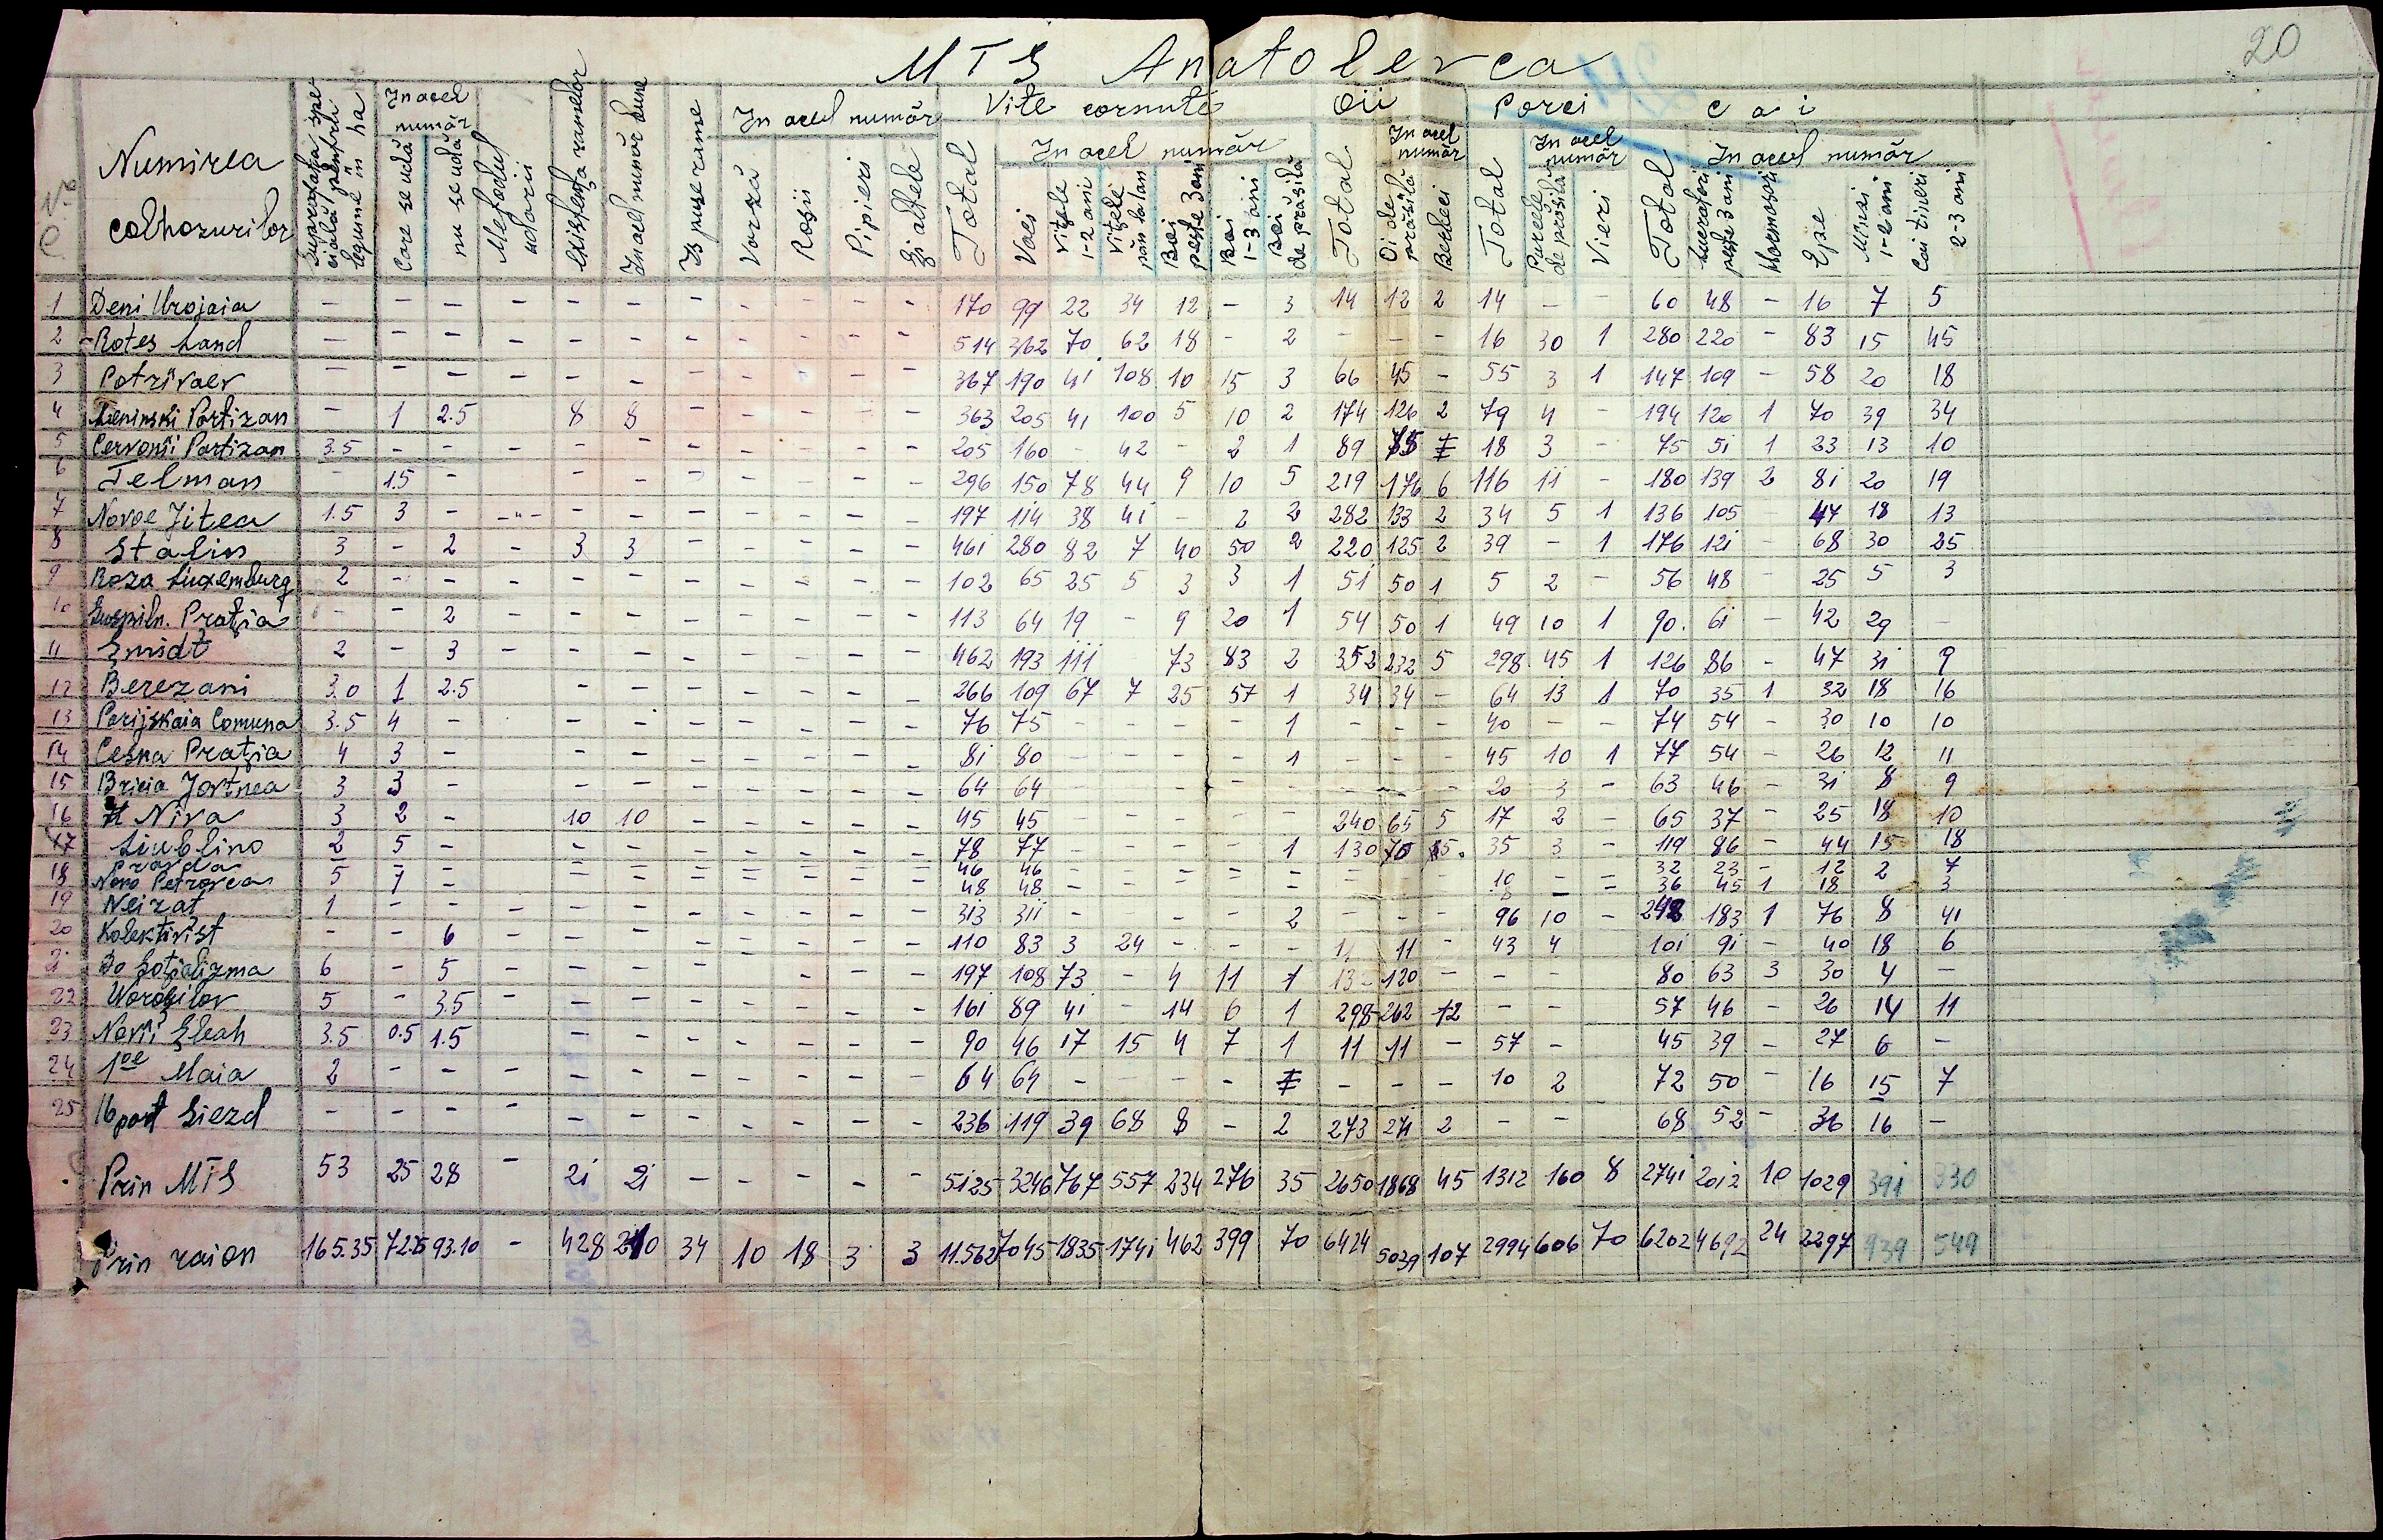 20
MTS Anatolevca
N: C Numirea colhozurilor Suprafața spe cială pentru legume în ha In acel număr Care se udă nu se udă Metodul udării Existența ramelor In acel număr bune Is puse rame In acel număr Varză Roșii Pipieri Și altele Vite cornute Total In acel număr Vaci Vițele 1-2 ani Vițele păn la 1 an Boi peste 3 ani Boi 1-3 ani Boi de prăsilă Oii Total In acel număr Oi de prăsilă Berbeci Porci Total In acel număr Purcele de prăsilă Vieri Cai Total In acel număr Lucratori peste 3 ani Harmosori Epe Mînji 1-2 ani Cai tineri 2-3 ani
1 Deni Urojaia — — — — — — — — — — — 170 99 22 34 12 — 3 14 12 2 14 — — 60 48 — 16 7 5
2 Rotes Land — — — — — — — — — — — 514 362 70 62 18 — 2 — — — 16 30 1 280 220 — 83 15 45
3 Potrivaev — — — — — — — — — — — 367 190 41 108 10 15 3 66 45 — 55 3 1 147 109 — 58 20 18
4 Leninski Partizan — 1 2.5 8 8 — — — — — 363 205 41 100 5 10 2 174 126 2 79 4 — 194 120 1 70 39 34
5 Cervonîi Partizan 3.5 — — — — — — — — — — 205 160 — 42 — 2 1 89 85 18 3 — 75 51 1 23 13 10
6 Telman — 1.5 — — — — — — — — 296 150 78 44 9 10 5 219 176 6 116 11 — 180 139 2 81 20 19
7 Novoe Jitea 1.5 3 — -"- — — — — — — — 197 114 38 41 2 2 282 133 2 34 5 1 136 105 47 18 13
8 Stalin 3 — 2 — 3 3 — — — — — 461 280 82 7 40 50 2 220 125 2 39 — 1 176 121 — 68 30 25
9 Roza Luxemburg 2 — — — — — — — — — — 102 65 25 5 3 3 1 51 50 1 5 2 — 56 48 — 25 5 3
10 Suspiln. Prația — — 2 — — — — — — — — 113 64 19 — 9 20 1 54 50 1 49 10 1 90. 61 — 42 29 —
11 Șmidt 2 — 3 — — — — — — — — 462 193 111 73 83 2 352 232 5 298 45 1 126 86 — 47 31 9
12 Berezani 3.0 1 2.5 — — — — — — — 266 109 67 7 25 57 1 34 34 — 64 13 1 70 35 1 32 18 16
13 Parijskaia Comuna 3.5 4 — — — — — — — — — 76 75 — — — — 1 — — — 40 — — 74 54 — 30 10 10
14 Cesna Prația 4 3 — — — — — — — — 81 80 — — — — 1 — — — 45 10 1 77 54 — 26 12 11
15 Bricia Jortnea 3 3 — — — — — — — — 64 64 — — — — — — — — 20 3 — 63 46 — 31 8 9
16 Niva 3 2 — 10 10 — — — — — 45 45 — — — — — 240 65 5 17 2 — 65 37 — 25 18 10
17 Liublino 2 5 — — — — — — — — 78 77 — — — — 1 130 70 35 3 — 119 86 — 44 15 18
Pravda — — — — — — — — — — 46 46 — — — — — — — — 10 — — 32 23 — 12 2 7
18 Novo Petrovca 5 7 — — — — — — — — 48 48 — — — — — 36 45 1 18 3
19 Neizat 1 — — — — — — — — — — 313 311 — — — 2 — — — 96 10 — 248 183 1 76 8 41
20 Kolektivist — — 6 — — — — — — — — 110 83 3 24 — — — 11 11 — 43 4 101 91 — 40 18 6
21 Do Soțializma 6 — 5 — — — — — — — 197 108 73 — 4 11 1 132 120 — — — 80 63 3 30 4 —
22 Voroșilov 5 — 3.5 — — — — — — — — 161 89 41 — 14 6 1 298 262 12 — — 57 46 — 26 14 11
23 Novîi Șleah 3.5 0.5 1.5 — — — — — — — 90 46 17 15 4 7 1 11 11 — 57 — 45 39 — 27 6 —
24 1oe Maia 2 — — — — — — — — — — 64 64 — — — — — — — 10 2 72 50 — 16 15 7
25 16 part Siezd — — — — — — — — — — — 236 119 39 68 8 — 2 273 271 2 — — 68 52 — 36 16 —
Prin MTS 53 25 28 — 21 21 — — — — — 5125 3246 767 557 234 276 35 2650 1868 45 1312 160 8 2741 2012 10 1029 391 330
Prin raion 165.35 72.25 93.10 — 428 210 34 10 18 3 3 11.562 7045 1835 1741 462 399 70 6424 5039 107 2994 606 70 6202 4692 24 2297 939 549